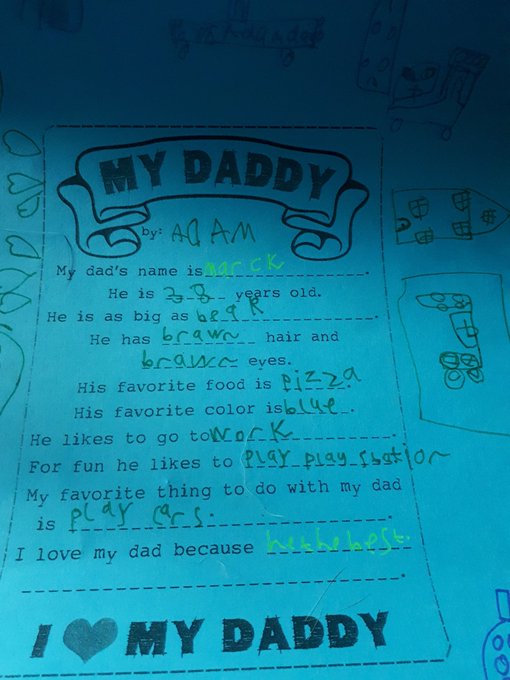 MY DADDY
by: ADAM
My dad's name is marck.
He is 38 years old.
He is as big as bear.
He has brawn hair and
brawn eyes.
His favorite food is pizza.
His favorite color is blue.
He likes to go to work.
For fun he likes to play play station
My favorite thing to do with my dad
is play cars.
I love my dad because hethebest.
I MY DADDY